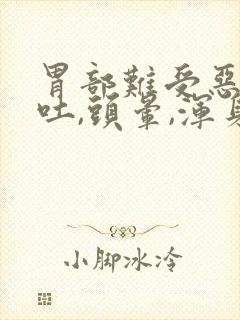 胃部難受惡
吐,頭暈,渾身
小脚冰冷